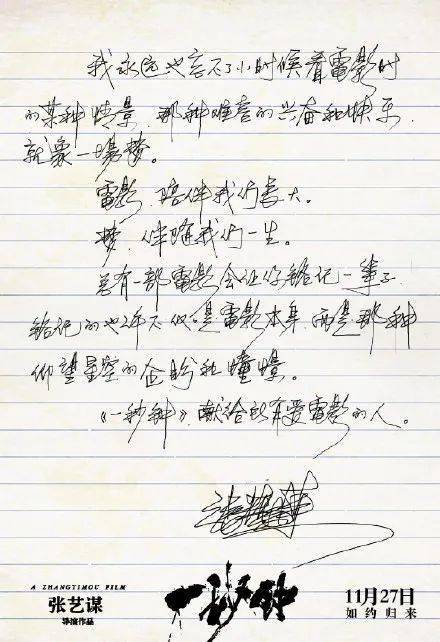 我永远也忘不了小时候看電影时
的某种情景，那种难言的兴奋和快乐，
就象一場梦。
電影，陪伴我们长大。
梦，伴随我们一生。
总有一部電影会让你铭记一辈子，
铭记的也许不仅是電影本身，而是那种
仰望星空的企盼和憧憬。
《一秒钟》，献给所有爱電影的人。
A ZHANG YIMOU FILM
张艺谋
导演作品
一秒钟
11月27日
如约归来